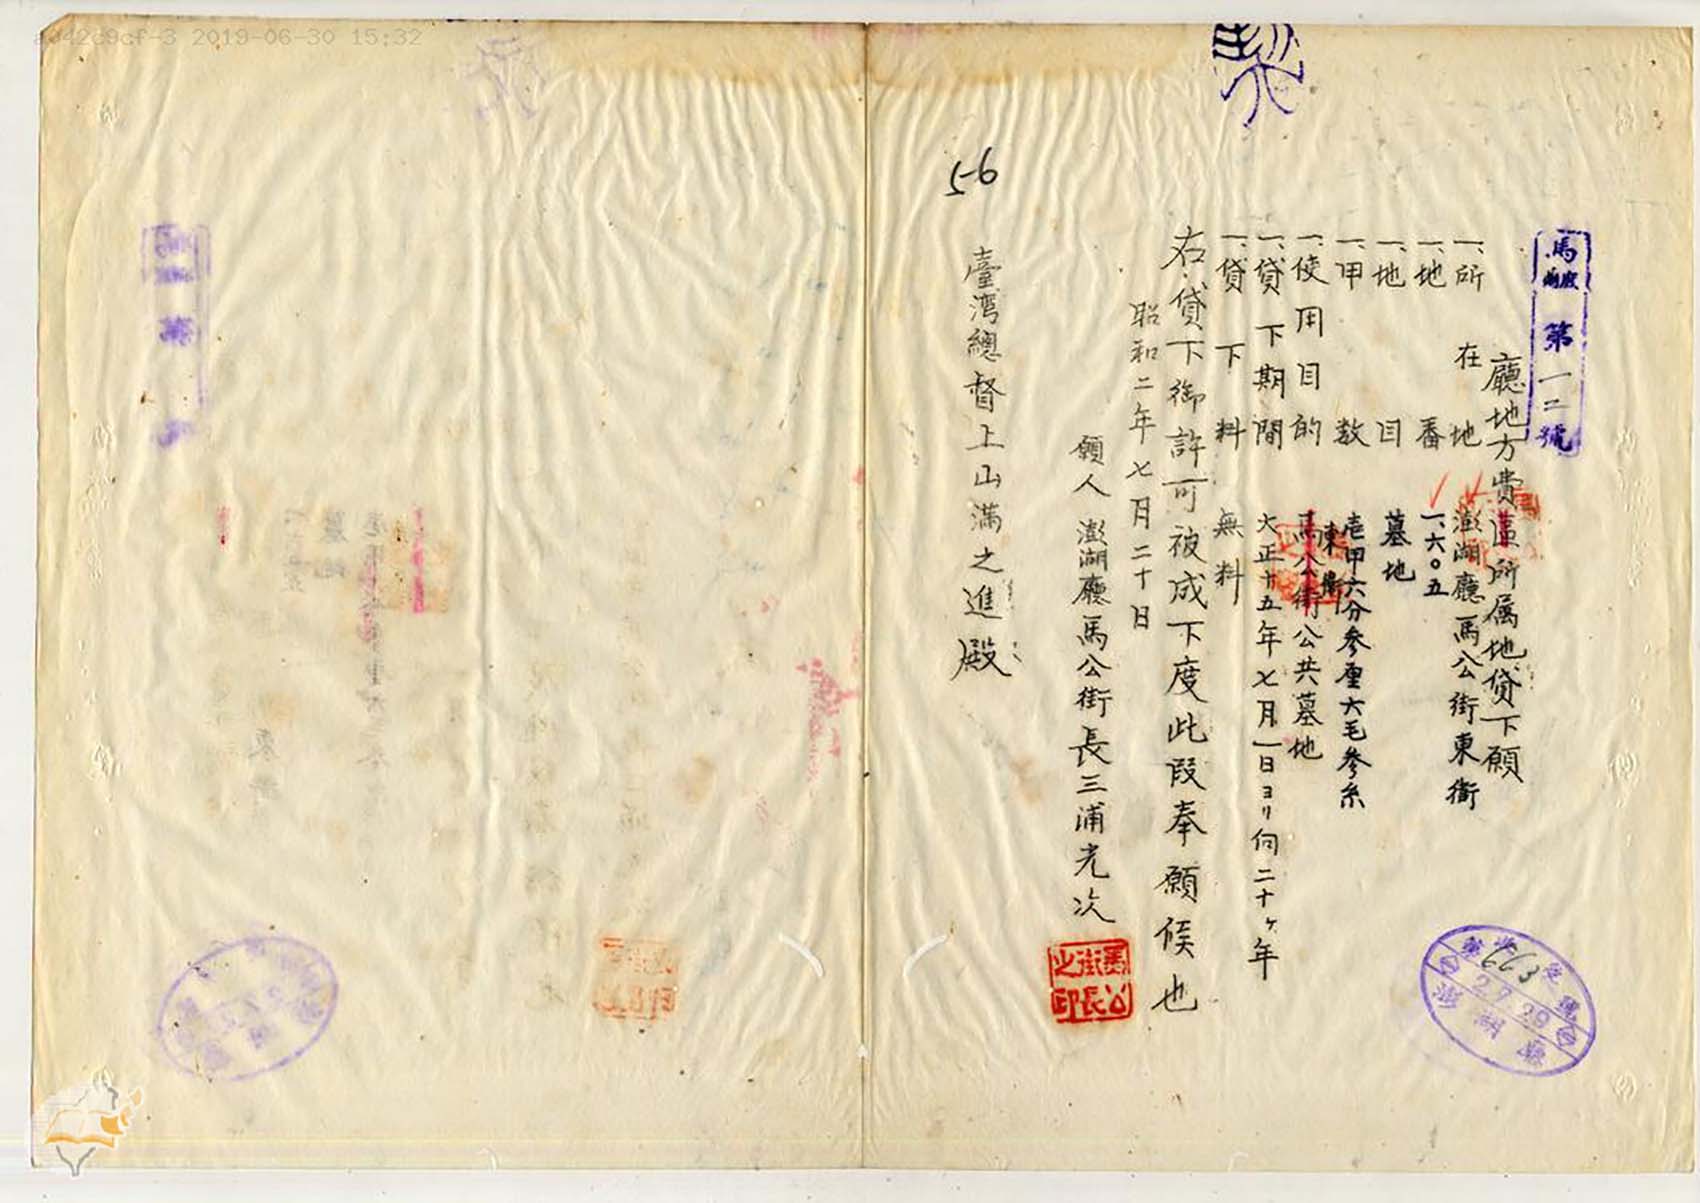 a942c9cf-3 2019-06-30 15:32
馬 第一二號
廳地方費區所属地貸下願
一、所在地 澎湖廳馬公街東衛
一、地番 一、六〇五
一、地目 墓地
一、甲数 壱甲六分参厘六毛参糸
一、使用目的 馬公街公共墓地
東衛
一、貸下期間 大正十五年七月一日ヨリ向二十ヶ年
一、貸下料 無料
右貸下御許可被成下度此段奉願候也
昭和二年七月二十日
願人 澎湖廳馬公街長三浦光次
馬公街長之印
臺湾總督上山満之進殿
56
第663號
2.7.29
澎湖廳